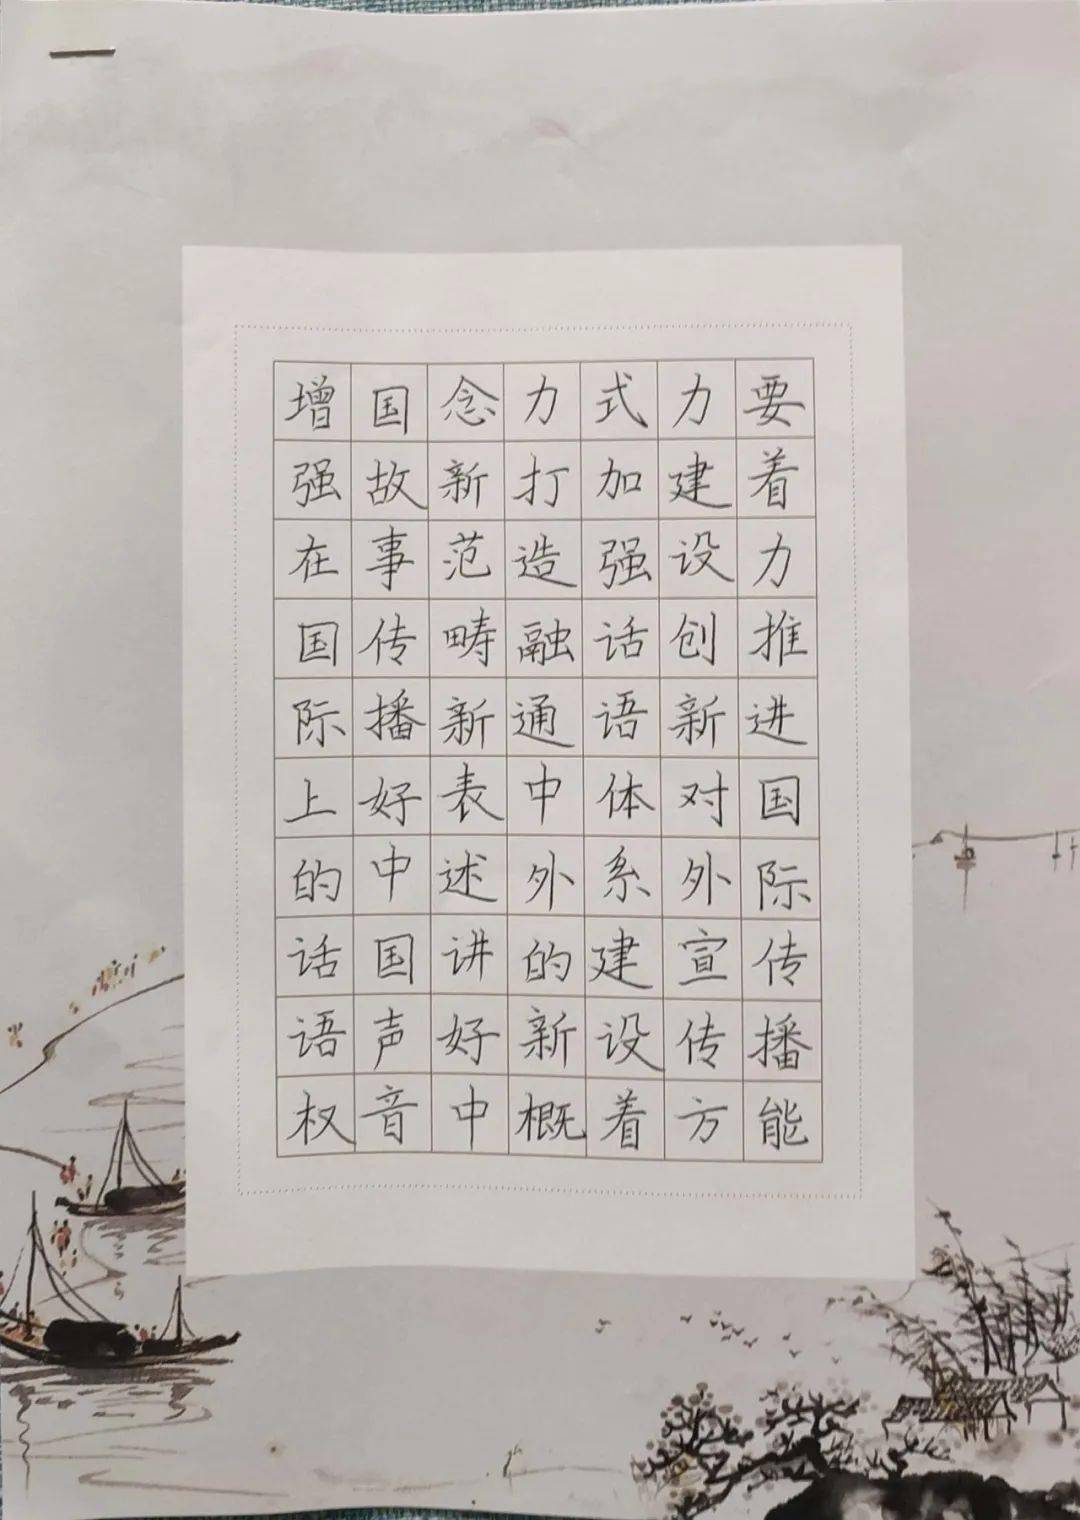 要着力推进国际传播能
力建设创新对外宣传方
式加强话语体系建设着
力打造融通中外的新概
念新范畴新表述讲好中
国故事传播好中国声音
增强在国际上的话语权